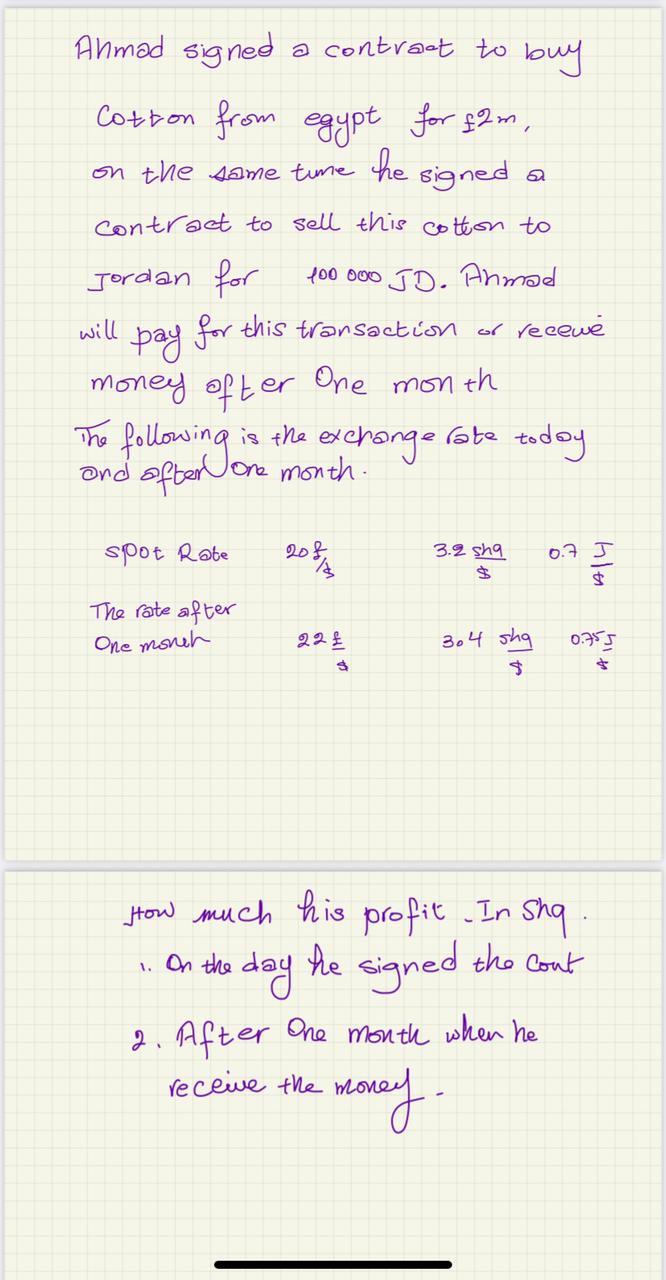 Ahmad signed a contract to buy
Cotton from egypt for £2m,
on the same time he signed a
contract to sell this cotton to
Jordan for 100 000 JD. Ahmad
will pay for this transaction or receive
money after One month
The following is the exchange rate today
and after One month.
Spot Rate 20 £/$ 3.2 shq/$ 0.7 J/$
The rate after
One month 22 £/$ 3.4 shq/$ 0.75 J/$
How much his profit . In Shq .
1. On the day he signed the Cont
2. After One month when he
receive the money.